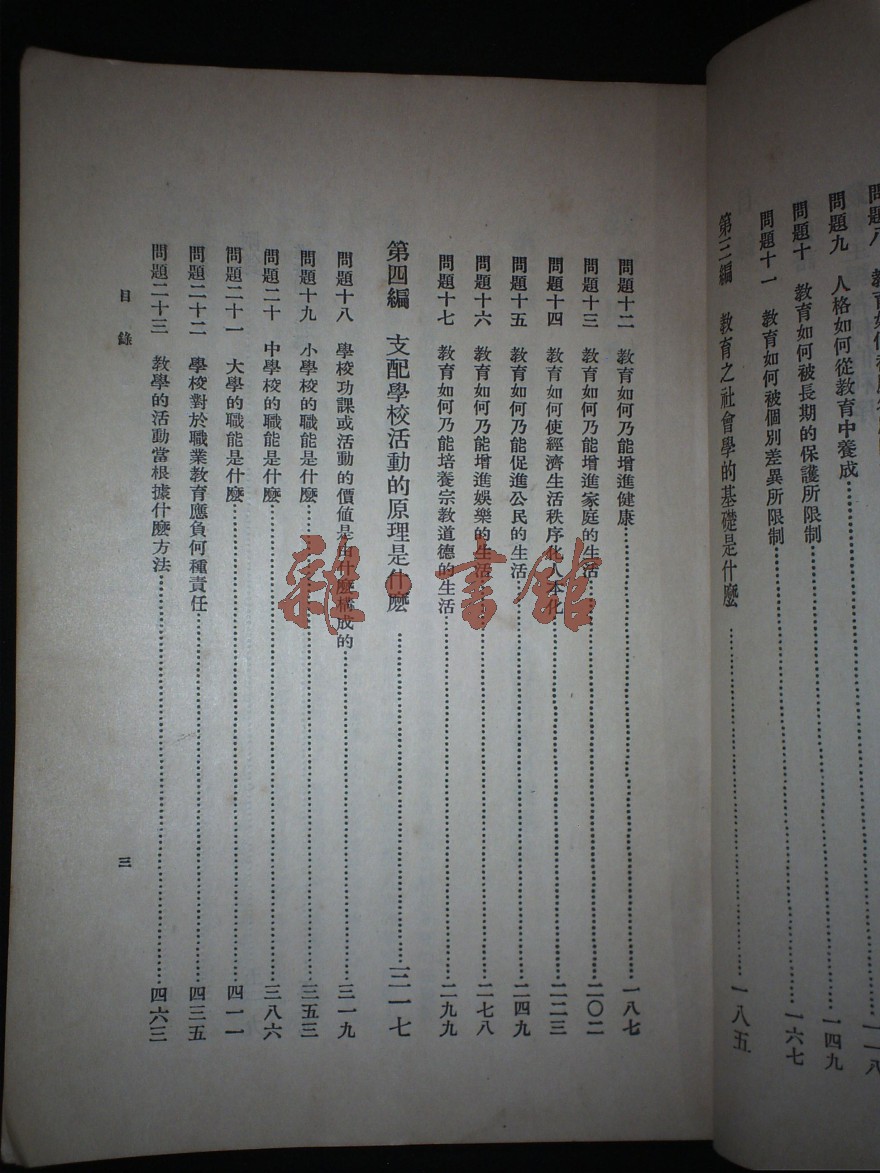 教育如何
一一八
問題九　人格如何從教育中養成……一四九
問題十　教育如何被長期的保護所限制……一六七
問題十一　教育如何被個別差異所限制
第三編　教育之社會學的基礎是什麼……一八五
問題十二　教育如何乃能增進健康……一八七
問題十三　教育如何乃能增進家庭的生活……二〇二
問題十四　教育如何使經濟生活秩序化人本化……二二三
問題十五　教育如何乃能促進公民的生活……二四九
問題十六　教育如何乃能增進娛樂的生活……二七八
問題十七　教育如何乃能培養宗教道德的生活……二九九
第四編　支配學校活動的原理是什麼……三一七
問題十八　學校功課或活動的價值是由什麼構成的……三一九
問題十九　小學校的職能是什麼……三五三
問題二十　中學校的職能是什麼……三八六
問題二十一　大學的職能是什麼……四一一
問題二十二　學校對於職業教育應負何種責任……四三五
問題二十三　教學的活動當根據什麼方法……四六三
目錄
三
雜·書館